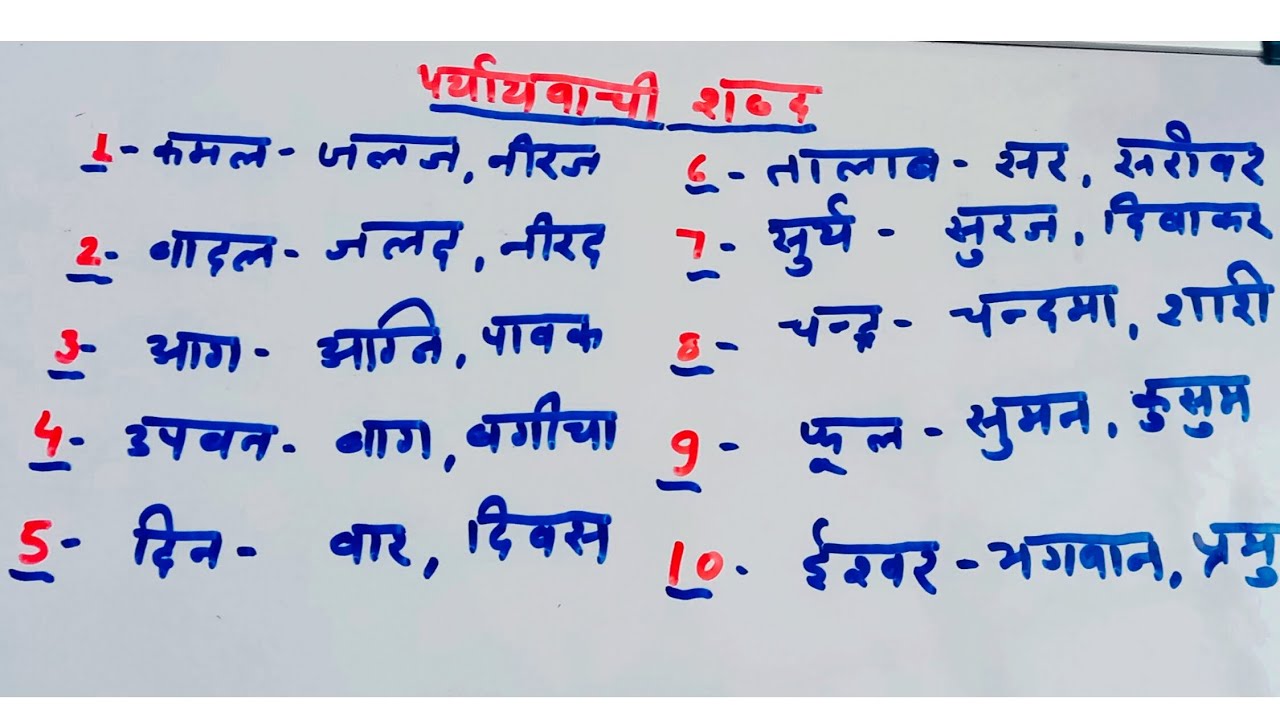 पर्यायवाची शब्द
1- कमल - जलज, नीरज
2- बादल - जलद, नीरद
3- आग - अग्नि, पावक
4- उपवन - बाग, बगीचा
5- दिन - वार, दिवस
6- तालाब - सर, सरोवर
7- सुर्य - सुरज, दिवाकर
8- चन्द्र - चन्दमा, शशी
9- फूल - सुमन, कुसुम
10- ईश्वर - भगवान, प्रभु